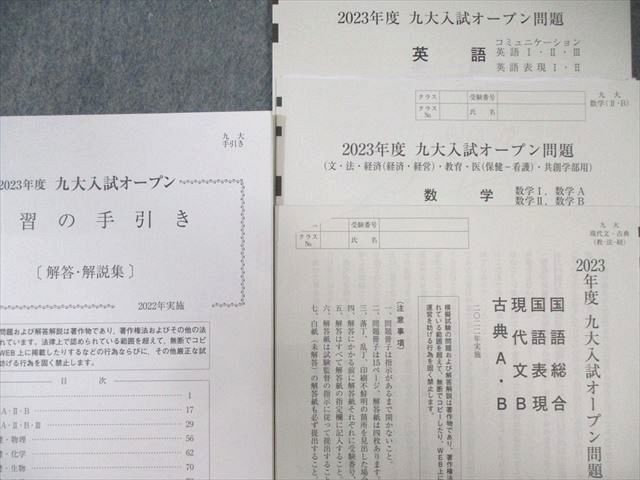 2023年度 九大入試オープン問題
英 語
コミュニケーション
英語Ⅰ・Ⅱ・Ⅲ
英語表現Ⅰ・Ⅱ
クラス
受験番号
クラスNo.
氏 名
九 大
数学(Ⅱ・B)
2023年度 九大入試オープン問題
(文・法・経済(経済・経営)・教育・医(保健-看護)・共創学部用)
数 学
数学Ⅰ, 数学A
数学Ⅱ, 数学B
九 大
手引き
2023年度 九大入試オープン
習の手引き
〔解答・解説集〕
2022年実施
問題および解答解説は著作物であり，著作権法およびその他の法
れています。法律上で認められている範囲を超えて，無断でコピ
WEB上に掲載したりするなどの行為ならびに，その他厳正な試
妨げる行為を固く禁止します。
目 次
1
A・Ⅱ・B
17
A・Ⅱ・B・Ⅲ
29
・物理
56
・化学
62
・生物
70
クラス
受験番号
クラスNo.
氏 名
九 大
現代文・古典
(教・法・経)
2023年度 九大入試オープン問題
国語総合
国語表現
現代文B
古典A・B
二〇二二年実施
模擬試験の問題および解答解説は著作物であり、著作
れている範囲を超えて、無断でコピーしたり、WEB上に
運営を妨げる行為を固く禁止します。
(注 意 事 項)
一、問題冊子は指示があるまで開かないこと。
二、問題冊子は15ページ、解答紙は四枚あります
三、落丁、乱丁、印刷不鮮明の箇所を見出した場合
四、解答にかかる前に解答紙それぞれに受験番号、
五、解答はすべて解答紙の指定欄に記入すること。
六、解答紙は試験監督の指示に従って提出すること。
七、白紙（未解答）の解答紙も必ず提出すること。